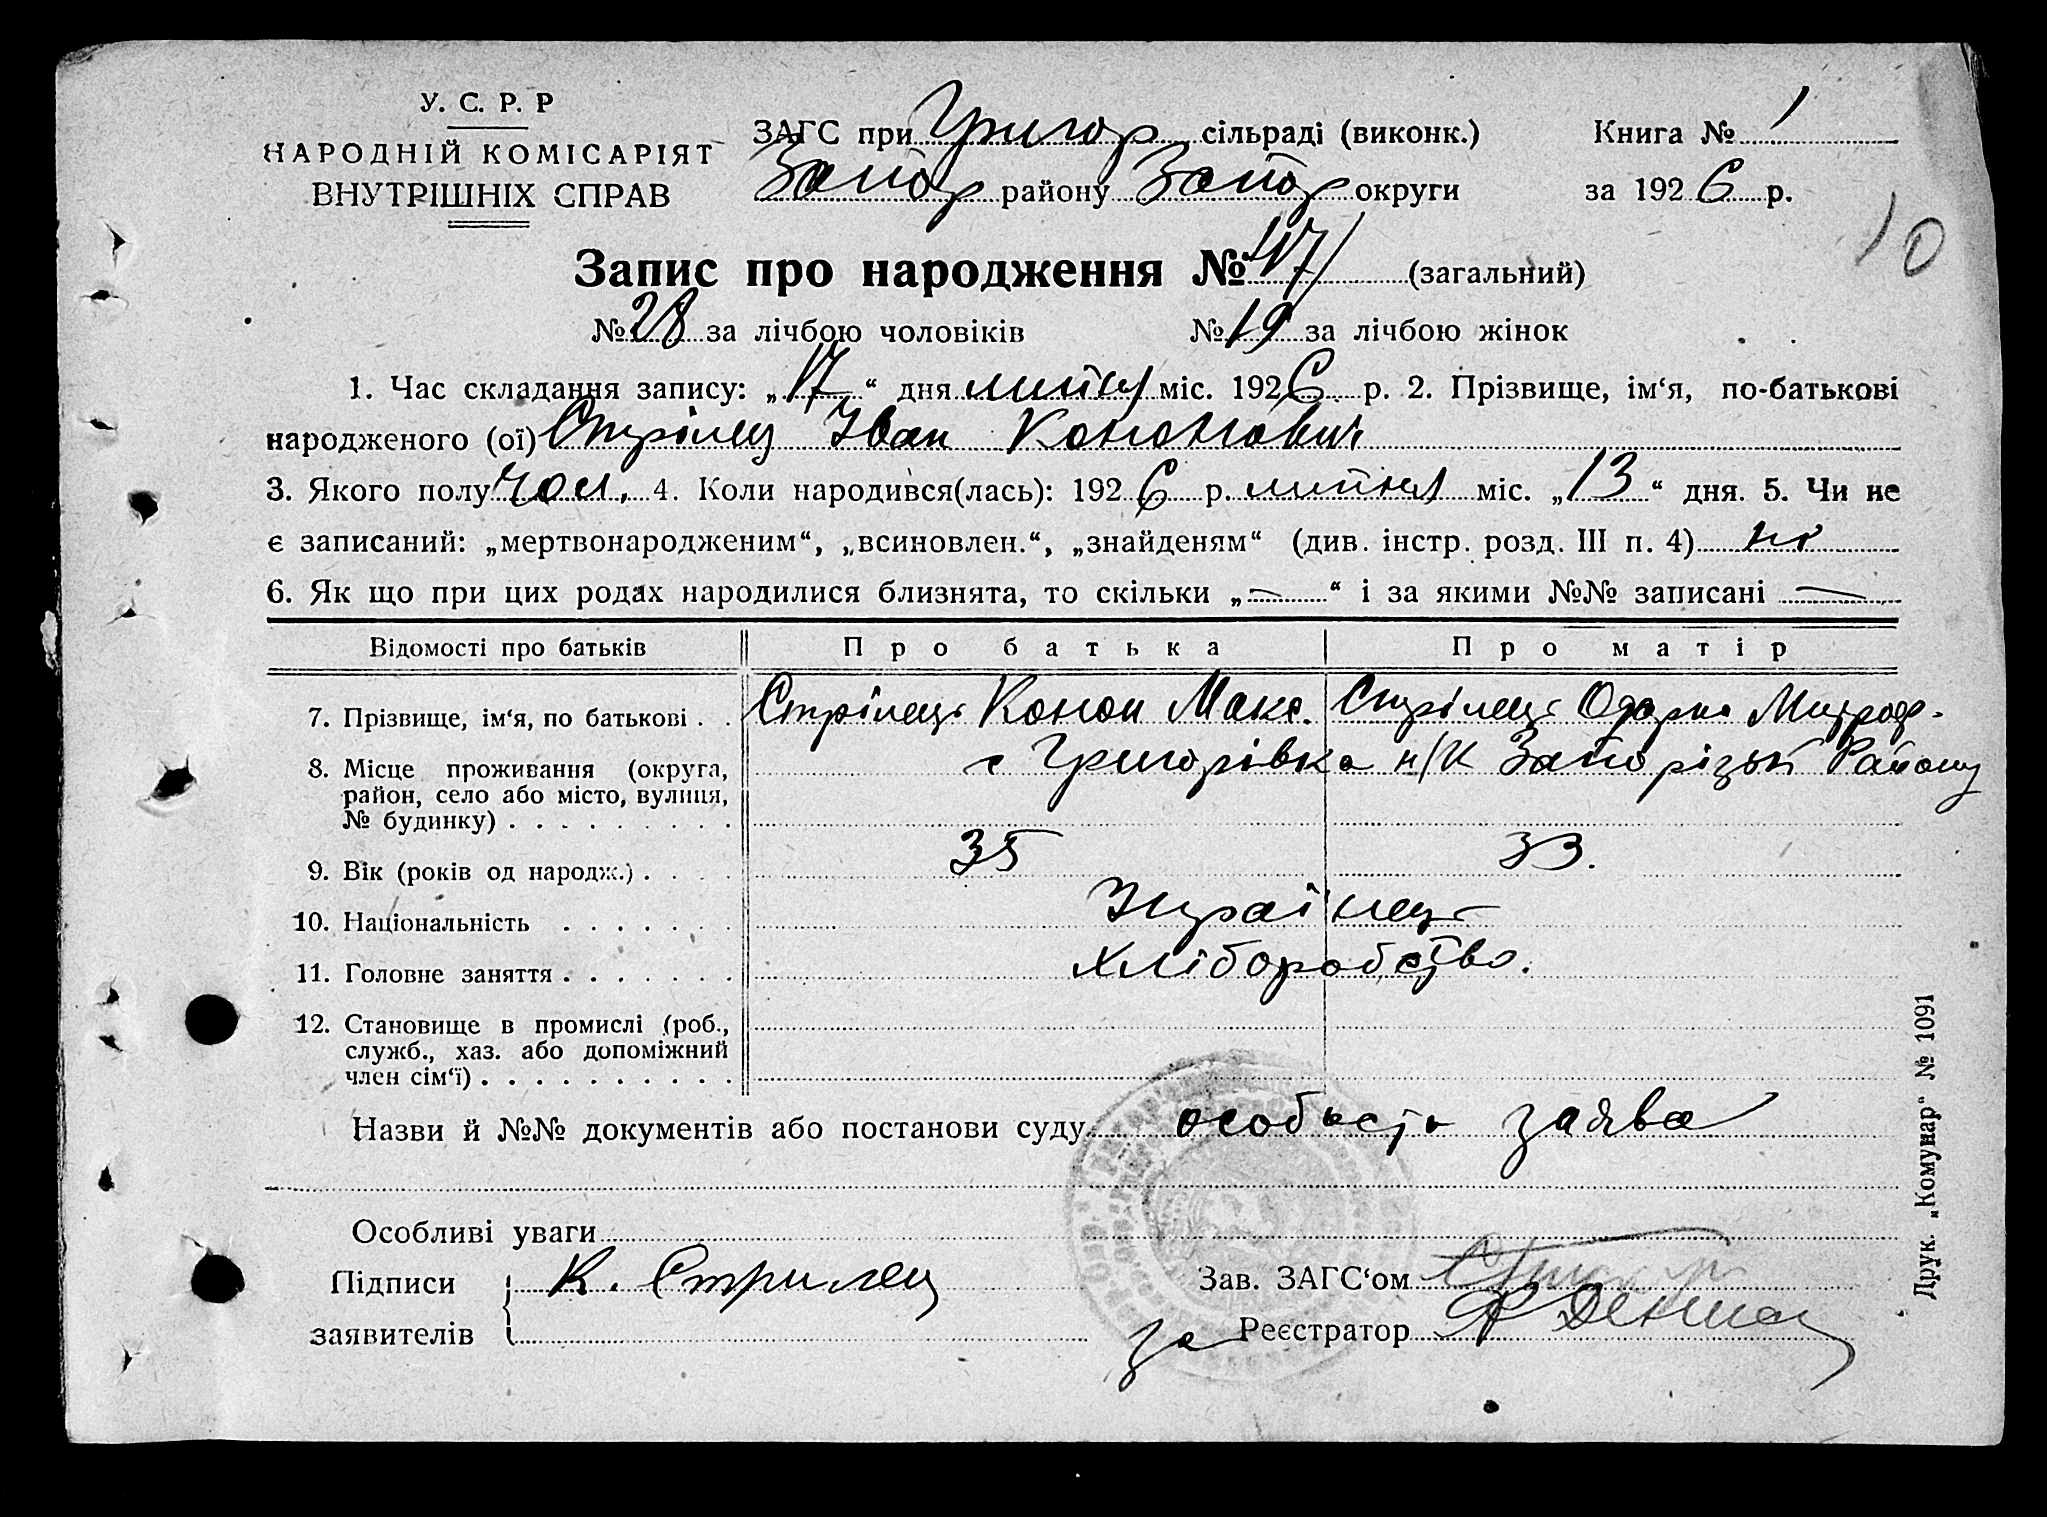 У. С. Р. Р
НАРОДНІЙ КОМІСАРІЯТ
ВНУТРІШНІХ СПРАВ
ЗАГС при Григор сільраді (виконк.)
Запор району Запор округи
Книга № 1
за 1926 р.
10
Запис про народження № 47 (загальний)
№ 28 за лічбою чоловіків № 19 за лічбою жінок
1. Час складання запису: „17“ дня липня міс. 1926 р. 2. Прізвище, ім‘я, по-батькові
народженого (ої) Стрілец Іван Кононович
3. Якого полу чол. 4. Коли народився(лась): 1926 р. липня міс. „13“ дня. 5. Чи не
є записаний: „мертвонародженим“, „всиновлен.“, „знайденям“ (див. інстр. розд. III п. 4) ні
6. Як що при цих родах народилися близнята, то скільки „—“ і за якими №№ записані —
Відомості про батьків Про батька Про матір
7. Прізвище, ім‘я, по батькові . . Стрілець Конон Макс. Стрілець Одарка Митроф.
8. Місце проживання (округа, с Григорівка н/К Запорізьк Району
район, село або місто, вулиця,
№ будинку) . . . . . . . . .
9. Вік (років од народж.) . . . . 35 33.
10. Національність . . . . . . . Українець
11. Головне заняття . . . . . . . Хліборобство.
12. Становище в промислі (роб.,
служб., хаз. або допоміжний
член сім‘ї) . . . . . . . . . . .
Назви й №№ документів або постанови суду особьсть заява
Особливі уваги
Підписи К. Стрилец
заявителів
Зав. ЗАГС‘ом
за Реєстратор
Друк. „Комунар“ № 1091